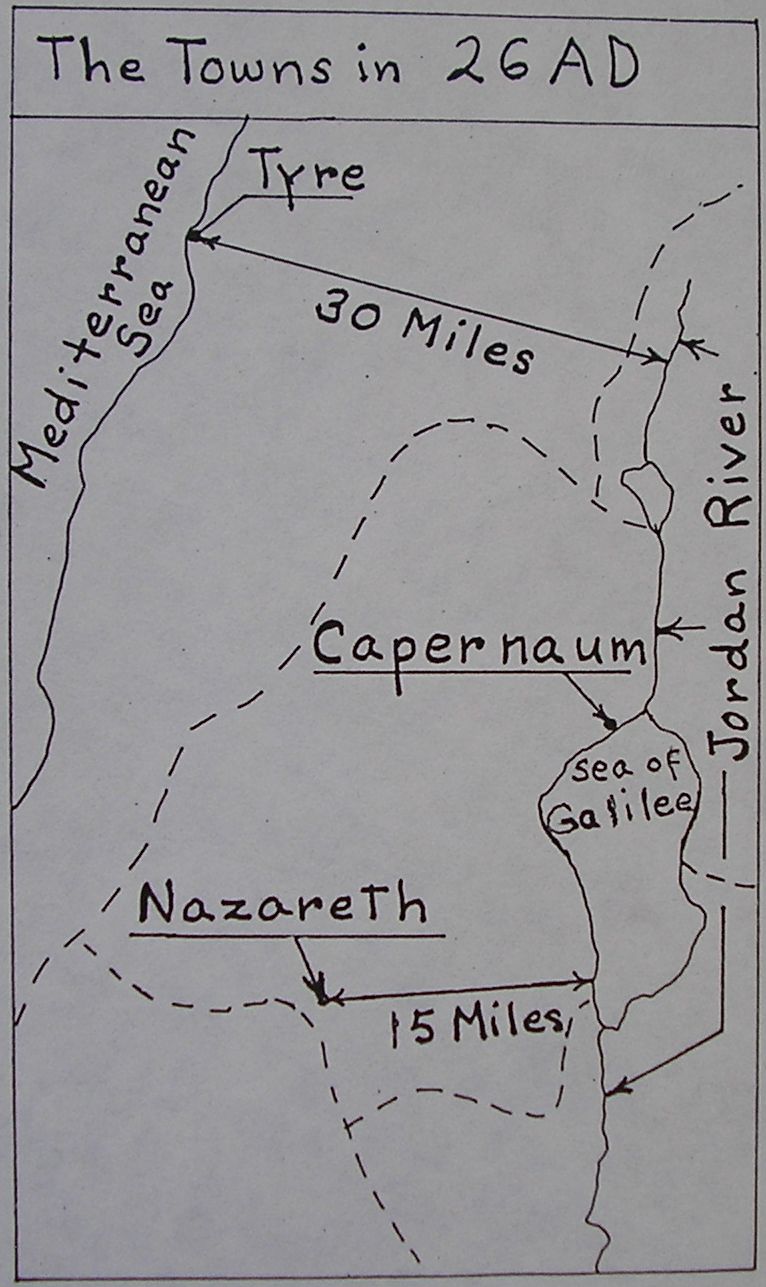 The Towns in 26 AD
Mediterranean
Sea
Tyre
30 Miles
Jordan River
Capernaum
Sea of
Galilee
Nazareth
15 Miles